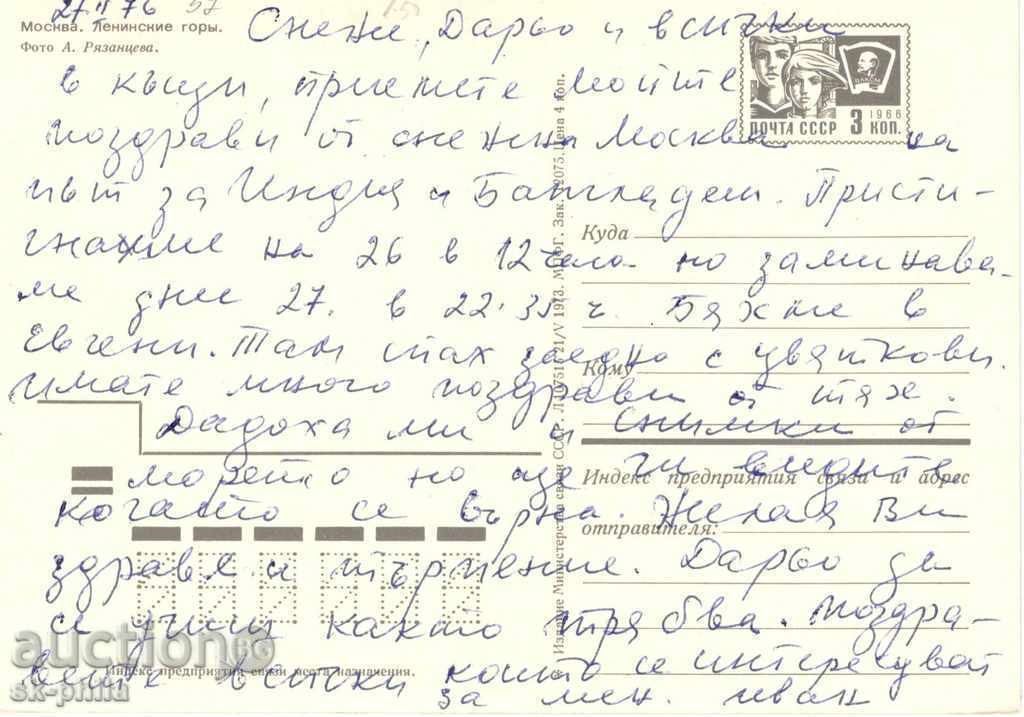 27 II 76 57
15
Москва. Ленинские горы.
Фото А. Рязанцева.
Снежи, Дарьо и всички
в къщи, приемете моите
поздрави от снежна Москва на
път за Индия и Бангладеш. Присти-
гнахме на 26 в 12 часа но заминава-
ме днес 27. в 22.35 ч. Бяхме в
Евгени. Там спах заедно с Цвяткови.
имате много поздрави от тях.
Дадоха ми и снимки от
морето но ще ги видите
когато се върна. Желая Ви
здраве и търпение. Дарьо да
се учиш както трябва. поздра-
вете всички които се интересуват
за мен. иван
ВЛКСМ
1966
ПОЧТА СССР 3 КОП.
Куда
Кому
Индекс предприятия связи и адрес
отправителя:
Издание Министерства связи СССР. 21/V 1973. МПФГ. Зак. Цена 4 коп.
Индекс предприятия связи места назначения.
auction
sk-philia